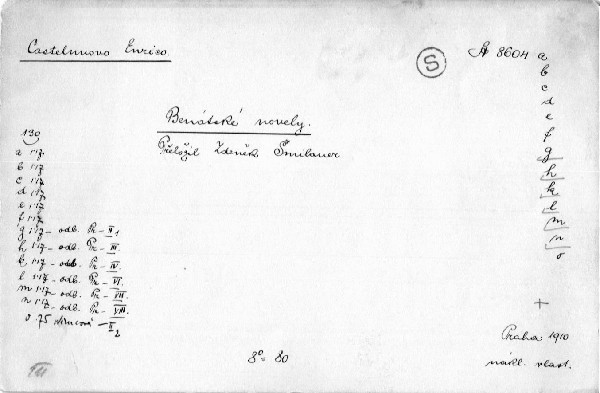 Castelnuovo Enrico.
S
A 8604 a
b
c
d
e
f
g
h
k
l
m
n
o
Benátské novely.
Přeložil Zdeněk Šmilauer
130
a 1·17
b 1·17
c 1·17
d 1·17
e 1·17
f 1·17
g 1·17 - odb. Pr - II1
h 1·17 - odb. Pr - III.
k 1·17 - odb. Pr - IV.
l 1·17 - odb. Pr - VI.
m 1·17 - odb. Pr - VII.
n 1·17 - odb. Pr - VIII.
o ·75 - II2
+
Praha 1910
nákl. vlast.
8° 80